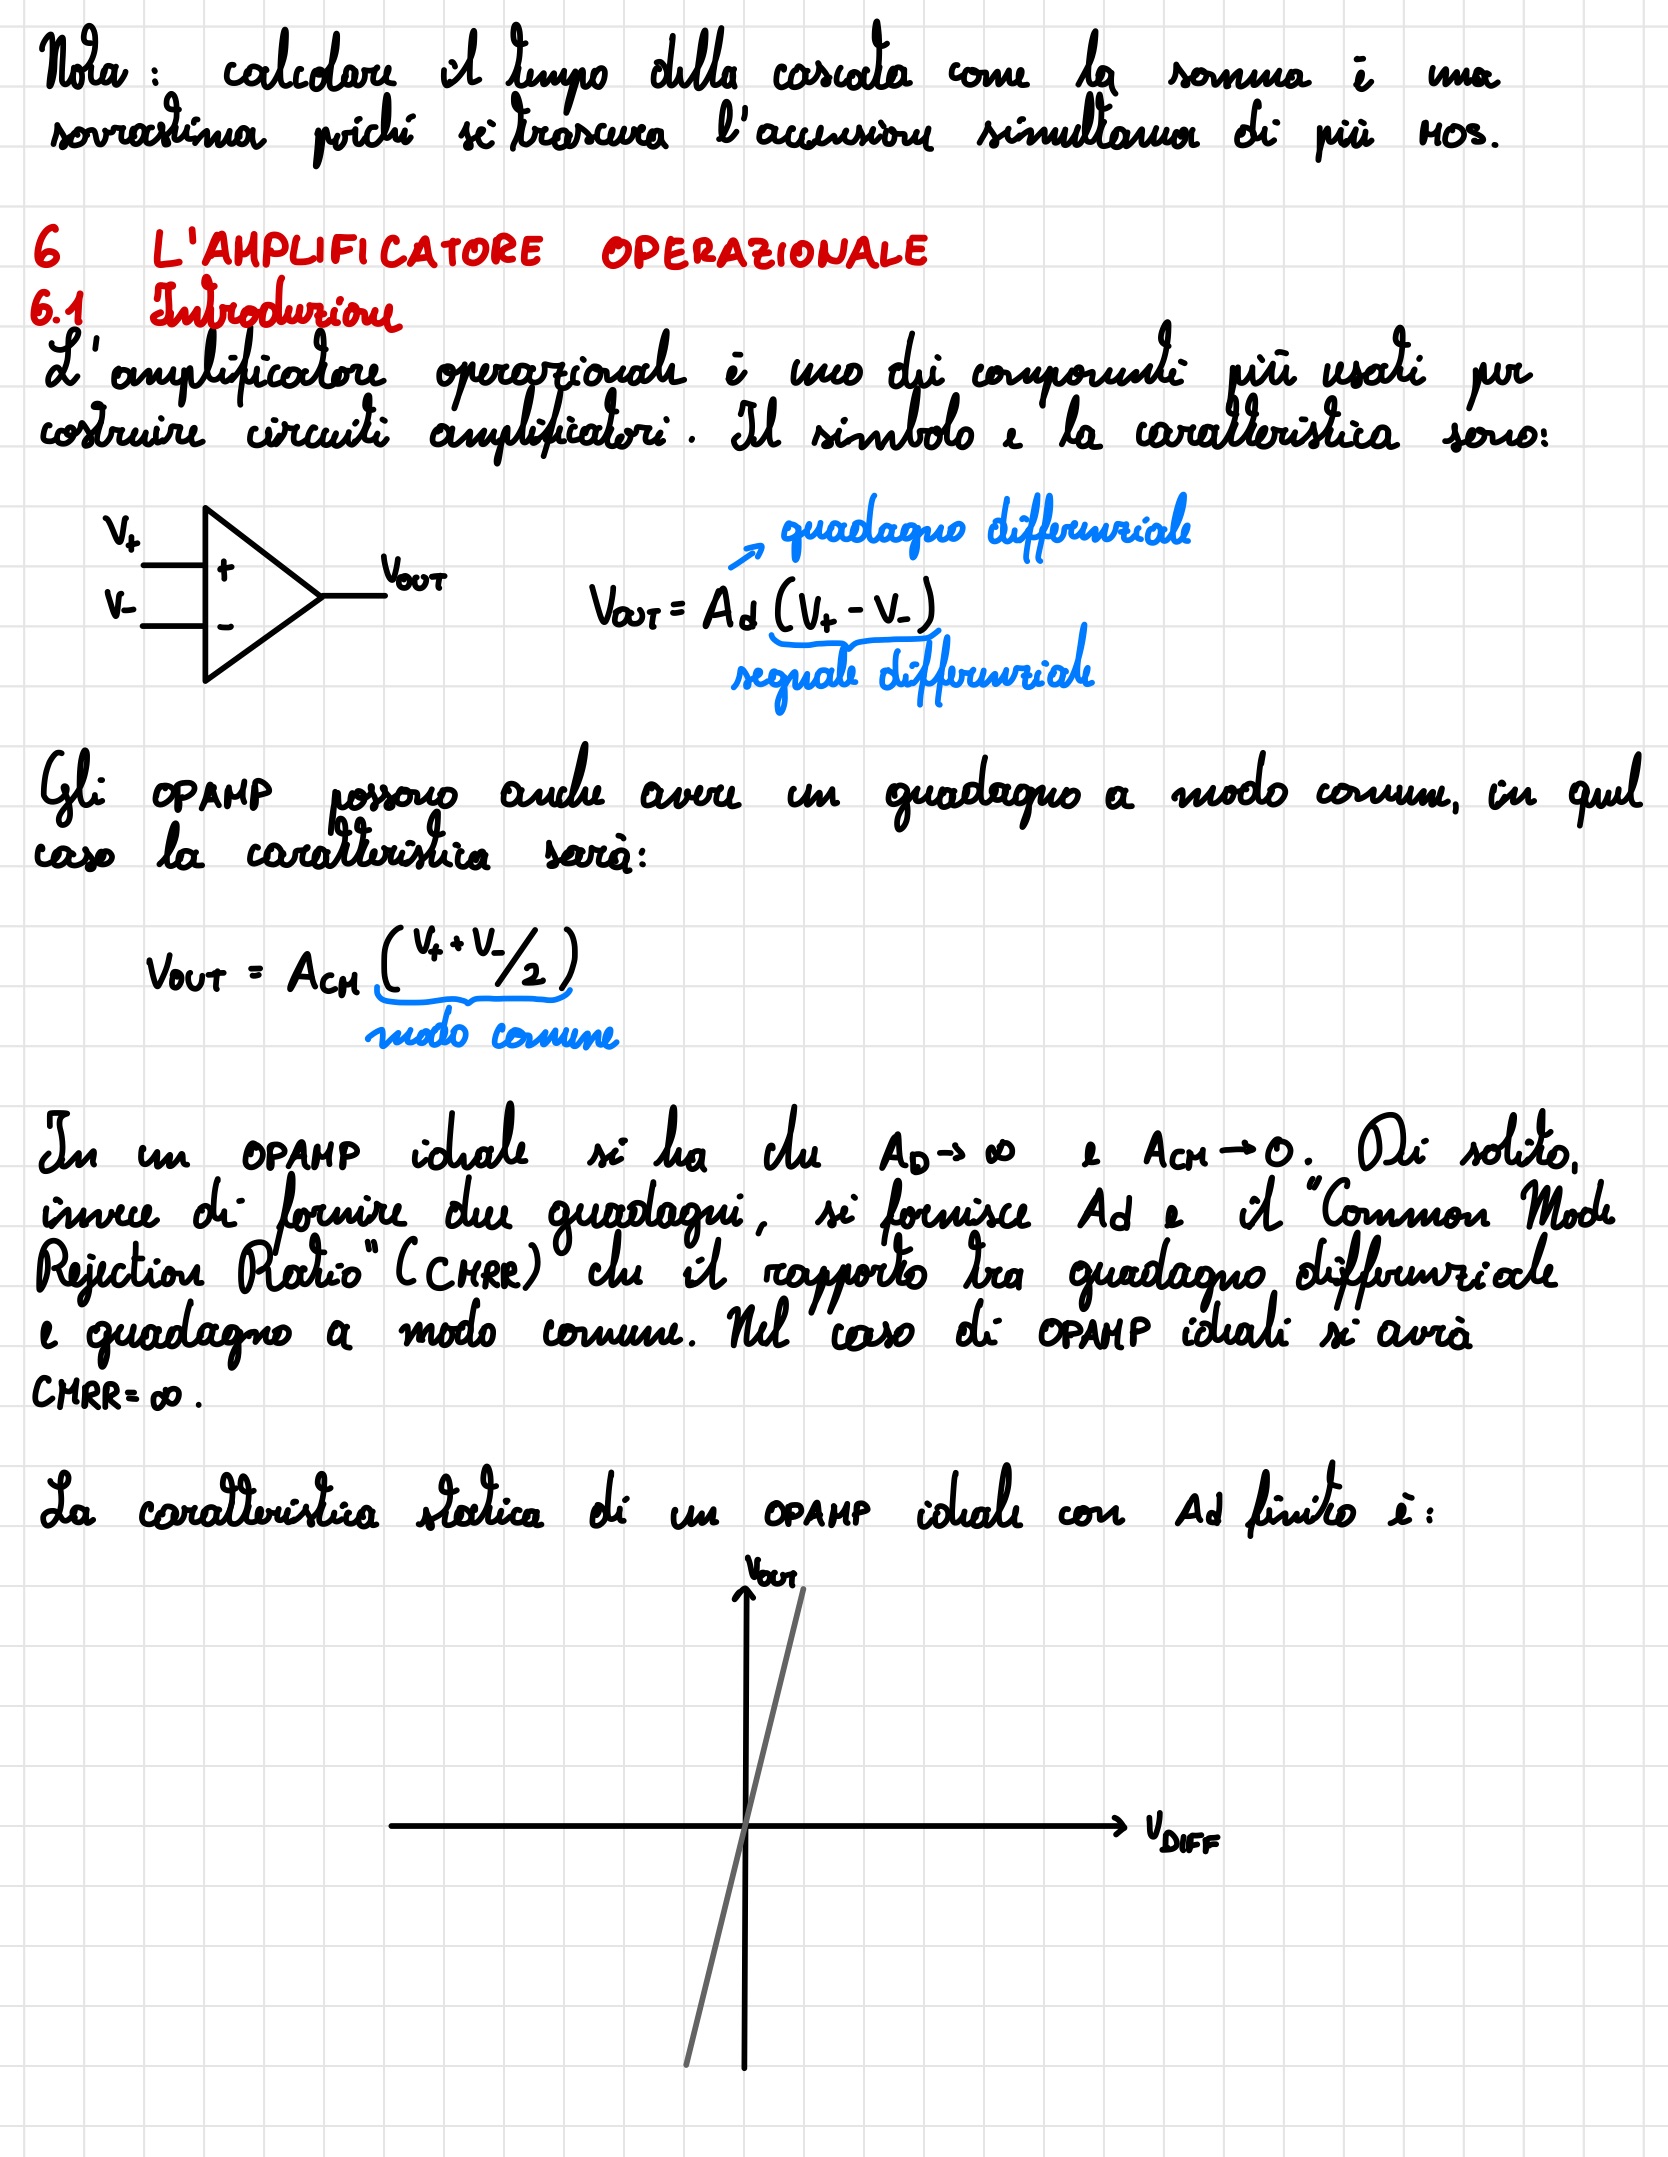 Nota: calcolare il tempo della cascata come la somma è una
sovrastima poiché si trascura l'accensione simultanea di più MOS.
6 L'AMPLIFICATORE OPERAZIONALE
6.1 Introduzione
L'amplificatore operazionale è uno dei componenti più usati per
costruire circuiti amplificatori. Il simbolo e la caratteristica sono:
guadagno differenziale
V+
+
VOUT
V-
-
VOUT = Ad (V+ - V-)
segnale differenziale
Gli OPAMP possono anche avere un guadagno a modo comune, in quel
caso la caratteristica sarà:
VOUT = ACM (V+ + V-/2)
modo comune
In un OPAMP ideale si ha che AD→∞ e ACM→0. Di solito,
invece di fornire due guadagni, si fornisce Ad e il "Common Mode
Rejection Ratio" (CMRR) che il rapporto tra guadagno differenziale
e guadagno a modo comune. Nel caso di OPAMP ideali si avrà
CMRR=∞.
La caratteristica statica di un OPAMP ideale con Ad finito è:
VOUT
VDIFF